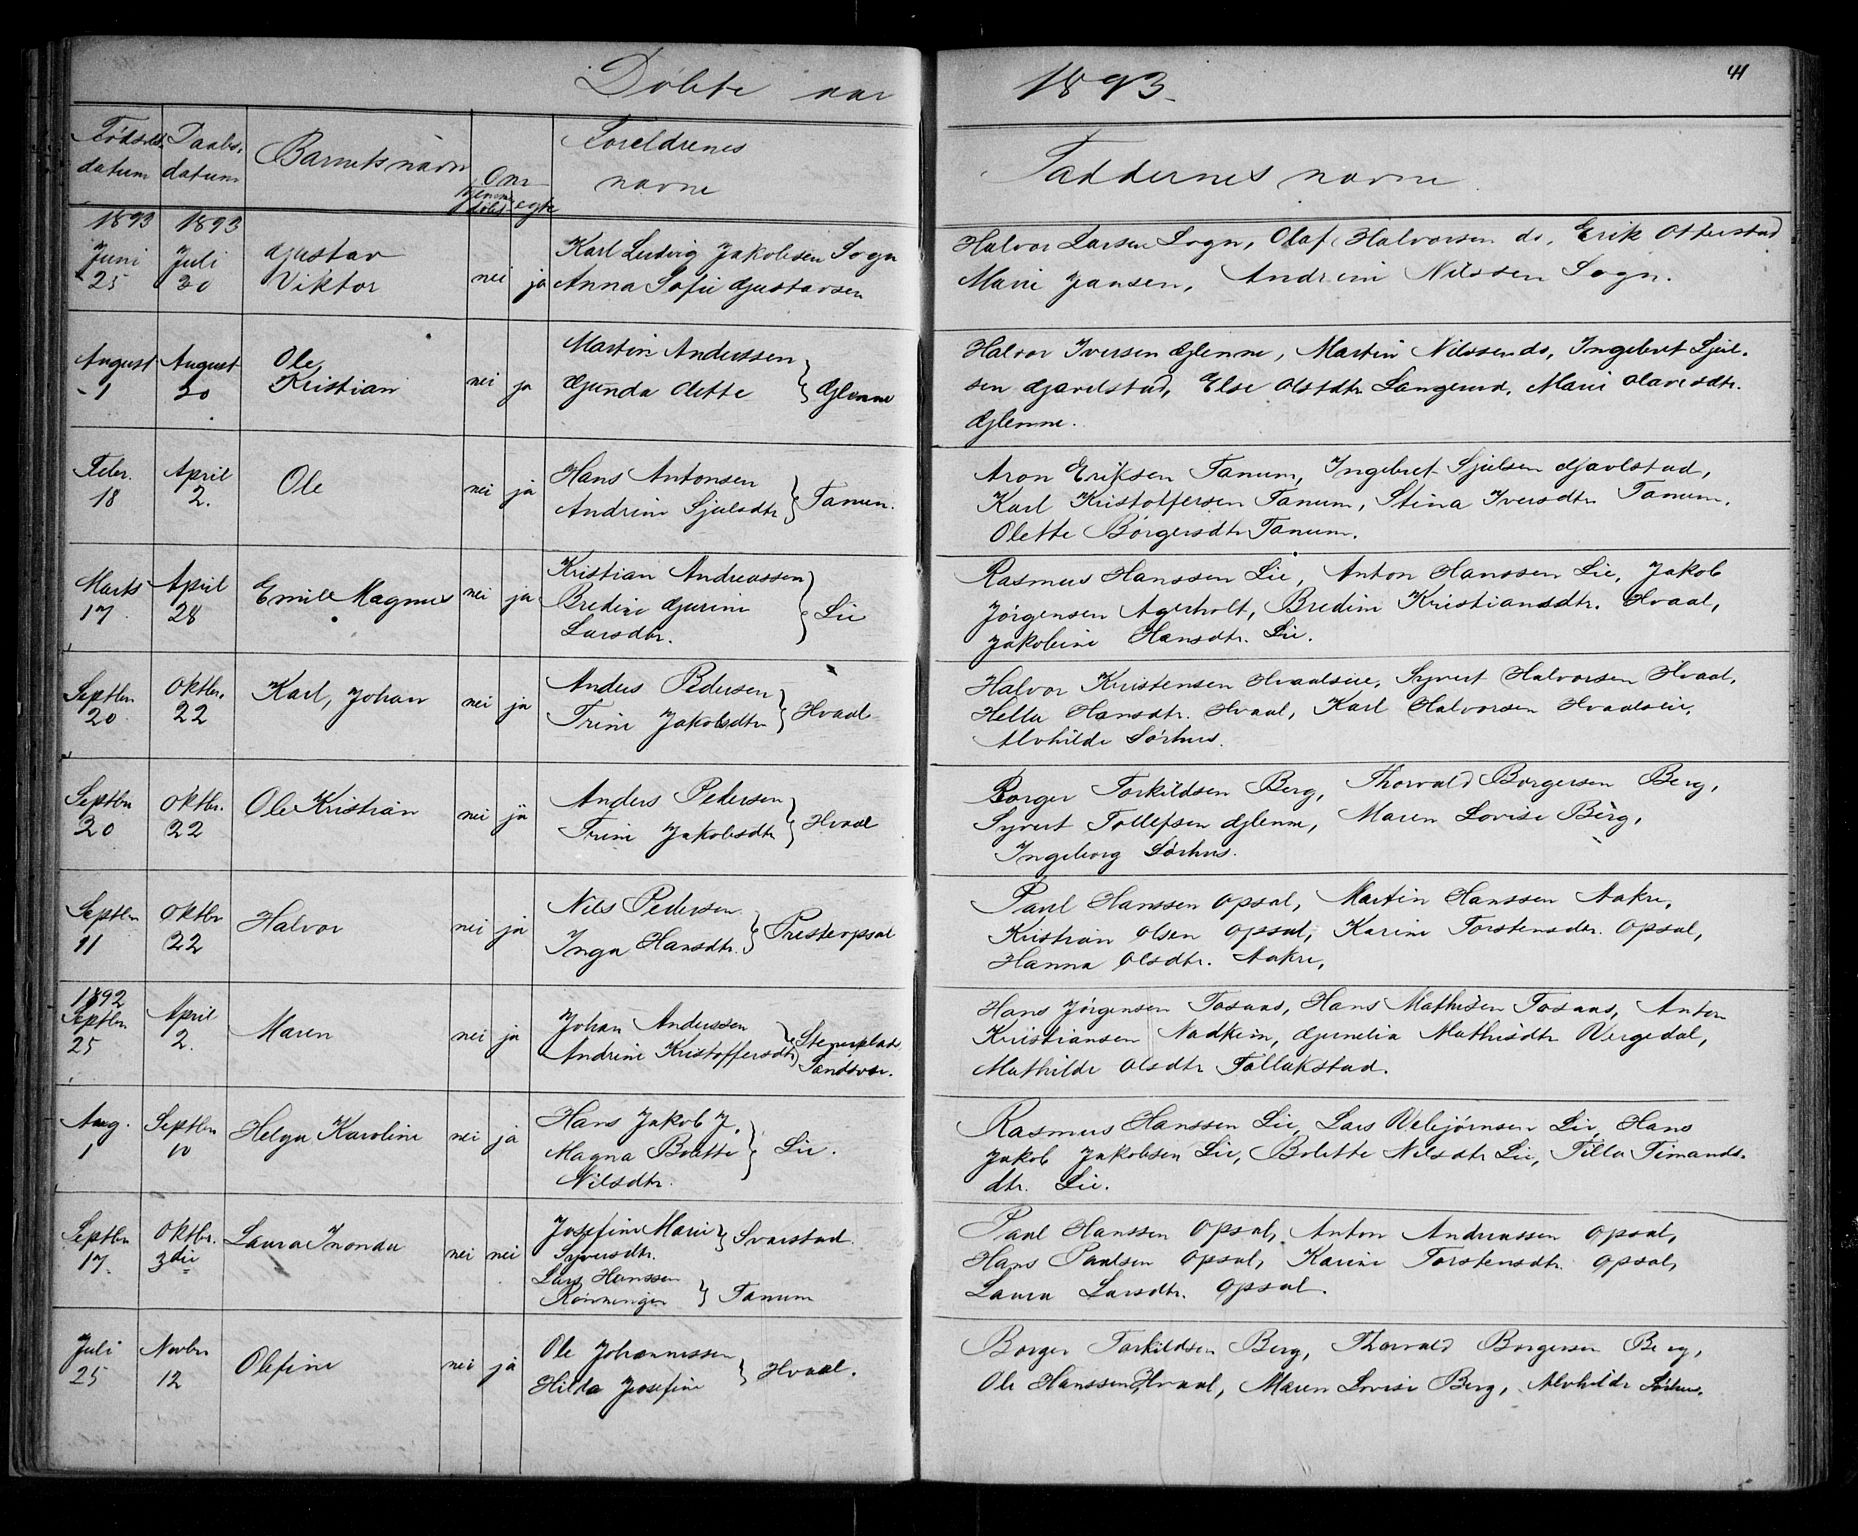 Døbte aar 1893.
41
Fødsels datum
Daabs datum
Barnets navn
Om hjemmedøbt
egte
Foreldrenes navne
Faddernes navne
1893 1893
Juni 25
Juli 30
Gustav Viktor
nei ja
Karl Ludvig Jakobsen Sogn
Anna Sofie Gustavsen
Halvor Larsen Sogn, Olaf Halvorsen do, Erik Otterstad
Marie Jansen, Andrine Nilssen Sogn.
August 1
August 20
Ole Kristian
nei ja
Martin Anderssen
Gunda Olette } Glenne
Halvor Iversen Glenne, Martin Nilssen do, Ingebret Sjul-
sen Gjavelstad, Else Olsdtr Langerud, Marie Olavesdtr.
Glenne.
Febr. 18
April 2.
Ole
nei ja
Hans Antonsen
Andrine Sjulsdtr } Tanum.
Aron Eriksen Tanum, Ingebret Sjulsen Gjavlstad,
Karl Kristoffersen Tanum, Stina Iversdtr Tanum,
Olette Børgersdtr Tanum.
Marts 17
April 28
Emile Magnus
nei ja
Kristian Andreassen
Bredine Gurine
Larsdtr. } Lie
Rasmus Hanssen Lie, Anton Hanssen Lie, Jakob
Jørgensen Agerholt, Bredine Kristiansdtr. Hvaal,
Jakobine Hansdtr. Lie.
Septbr 20
Oktbr. 22
Karl, Johan
nei ja
Anders Pedersen
Trine Jakobsdtr } Hvaal
Halvor Kristensen Hvaalseie, Syvert Halvorsen Hvaal,
Hella Hansdtr. Hvaal, Karl Halvorsen Hvaalseie,
Alvhilde Sørhus.
Septbr 20
Oktbr. 22
Ole Kristian
nei ja
Anders Pedersen
Trine Jakobsdtr } Hvaal
Borger Torkildsen Berg, Thorvald Borgersen Berg,
Syvert Tollefsen Glenne, Maren Lovise Berg,
Ingeborg Sørhus.
Septbr 11
Oktbr 22
Halvor
nei ja
Nils Pedersen
Inga Hansdtr. } Presteopsal
Paul Hanssen Opsal, Martin Hanssen Aakre,
Kristian Olsen Opsal, Karine Torstensdtr. Opsal,
Hanna Olsdtr. Aakre,
1892
Septbr 25
April 2.
Maren
nei ja
Johan Anderssen
Andrine Kristoffersdtr }
Sandsvær.
Hans Jørgensen Tosaas, Hans Mathisen Tosaas, Anton
Kristiansen Nadkim, Gunelia Mathisdtr Vergedal,
Mathilde Olsdtr Follakstad.
Aug. 1
Septbr 10
Helga Karoline
nei ja
Hans Jakob J.
Magna Bolette
Nilsdtr. } Lie.
Rasmus Hanssen Lie, Lars Vebjørnsen Lie, Hans
Jakob Jakobsen Lie, Bolette Nilsdtr Lie, Tilla Timands-
dtr. Lie.
Septbr 17
Oktbr. 3die
Laura Inonda
nei nei
Josefine Marie
Syversdtr. } Svarstad
Lars Hanssen
Rønningen } Tanum
Paul Hanssen Opsal, Anton Andreassen Opsal,
Hans Paulsen Opsal, Karine Torstensdtr. Opsal,
Laura Larsdtr. Opsal.
Juli 25
Novbr 12
Olefine
nei ja
Ole Johannessen
Hilda Josefine } Hvaal.
Borger Torkildsen Berg, Thorvald Borgersen Berg,
Ole Hanssen Hvaal, Maren Lovise Berg, Alvhilde Sørhus.